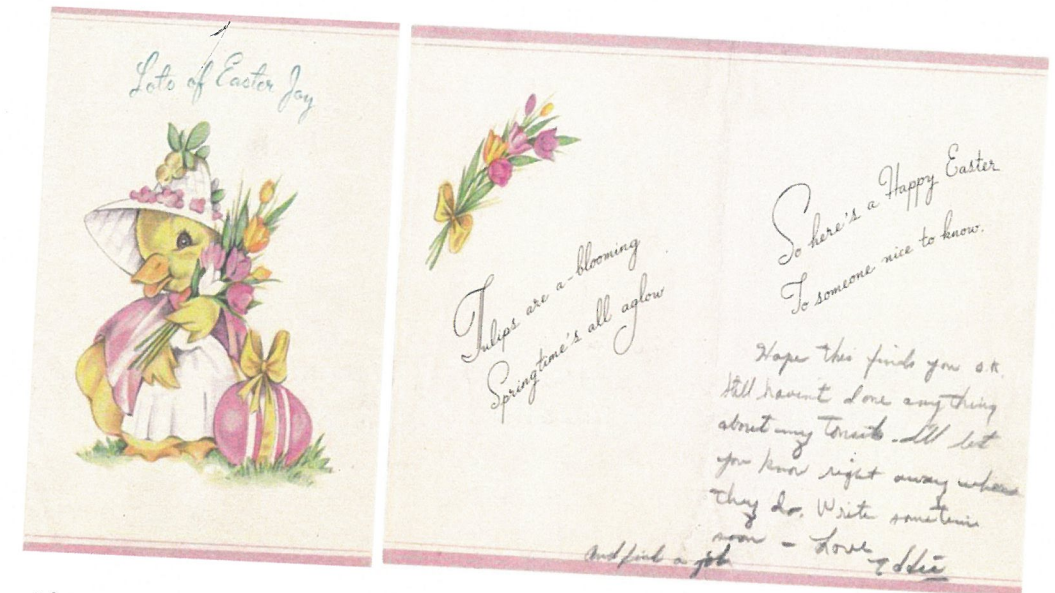 Lots of Easter Joy
Tulips are a-blooming
Springtime's all aglow
So here's a Happy Easter
To someone nice to know.
Hope this finds you o.k.
Still haven't done anything
about my tonsils. I'll let
you know right away when
they do. Write sometime
soon - Love
And find a job